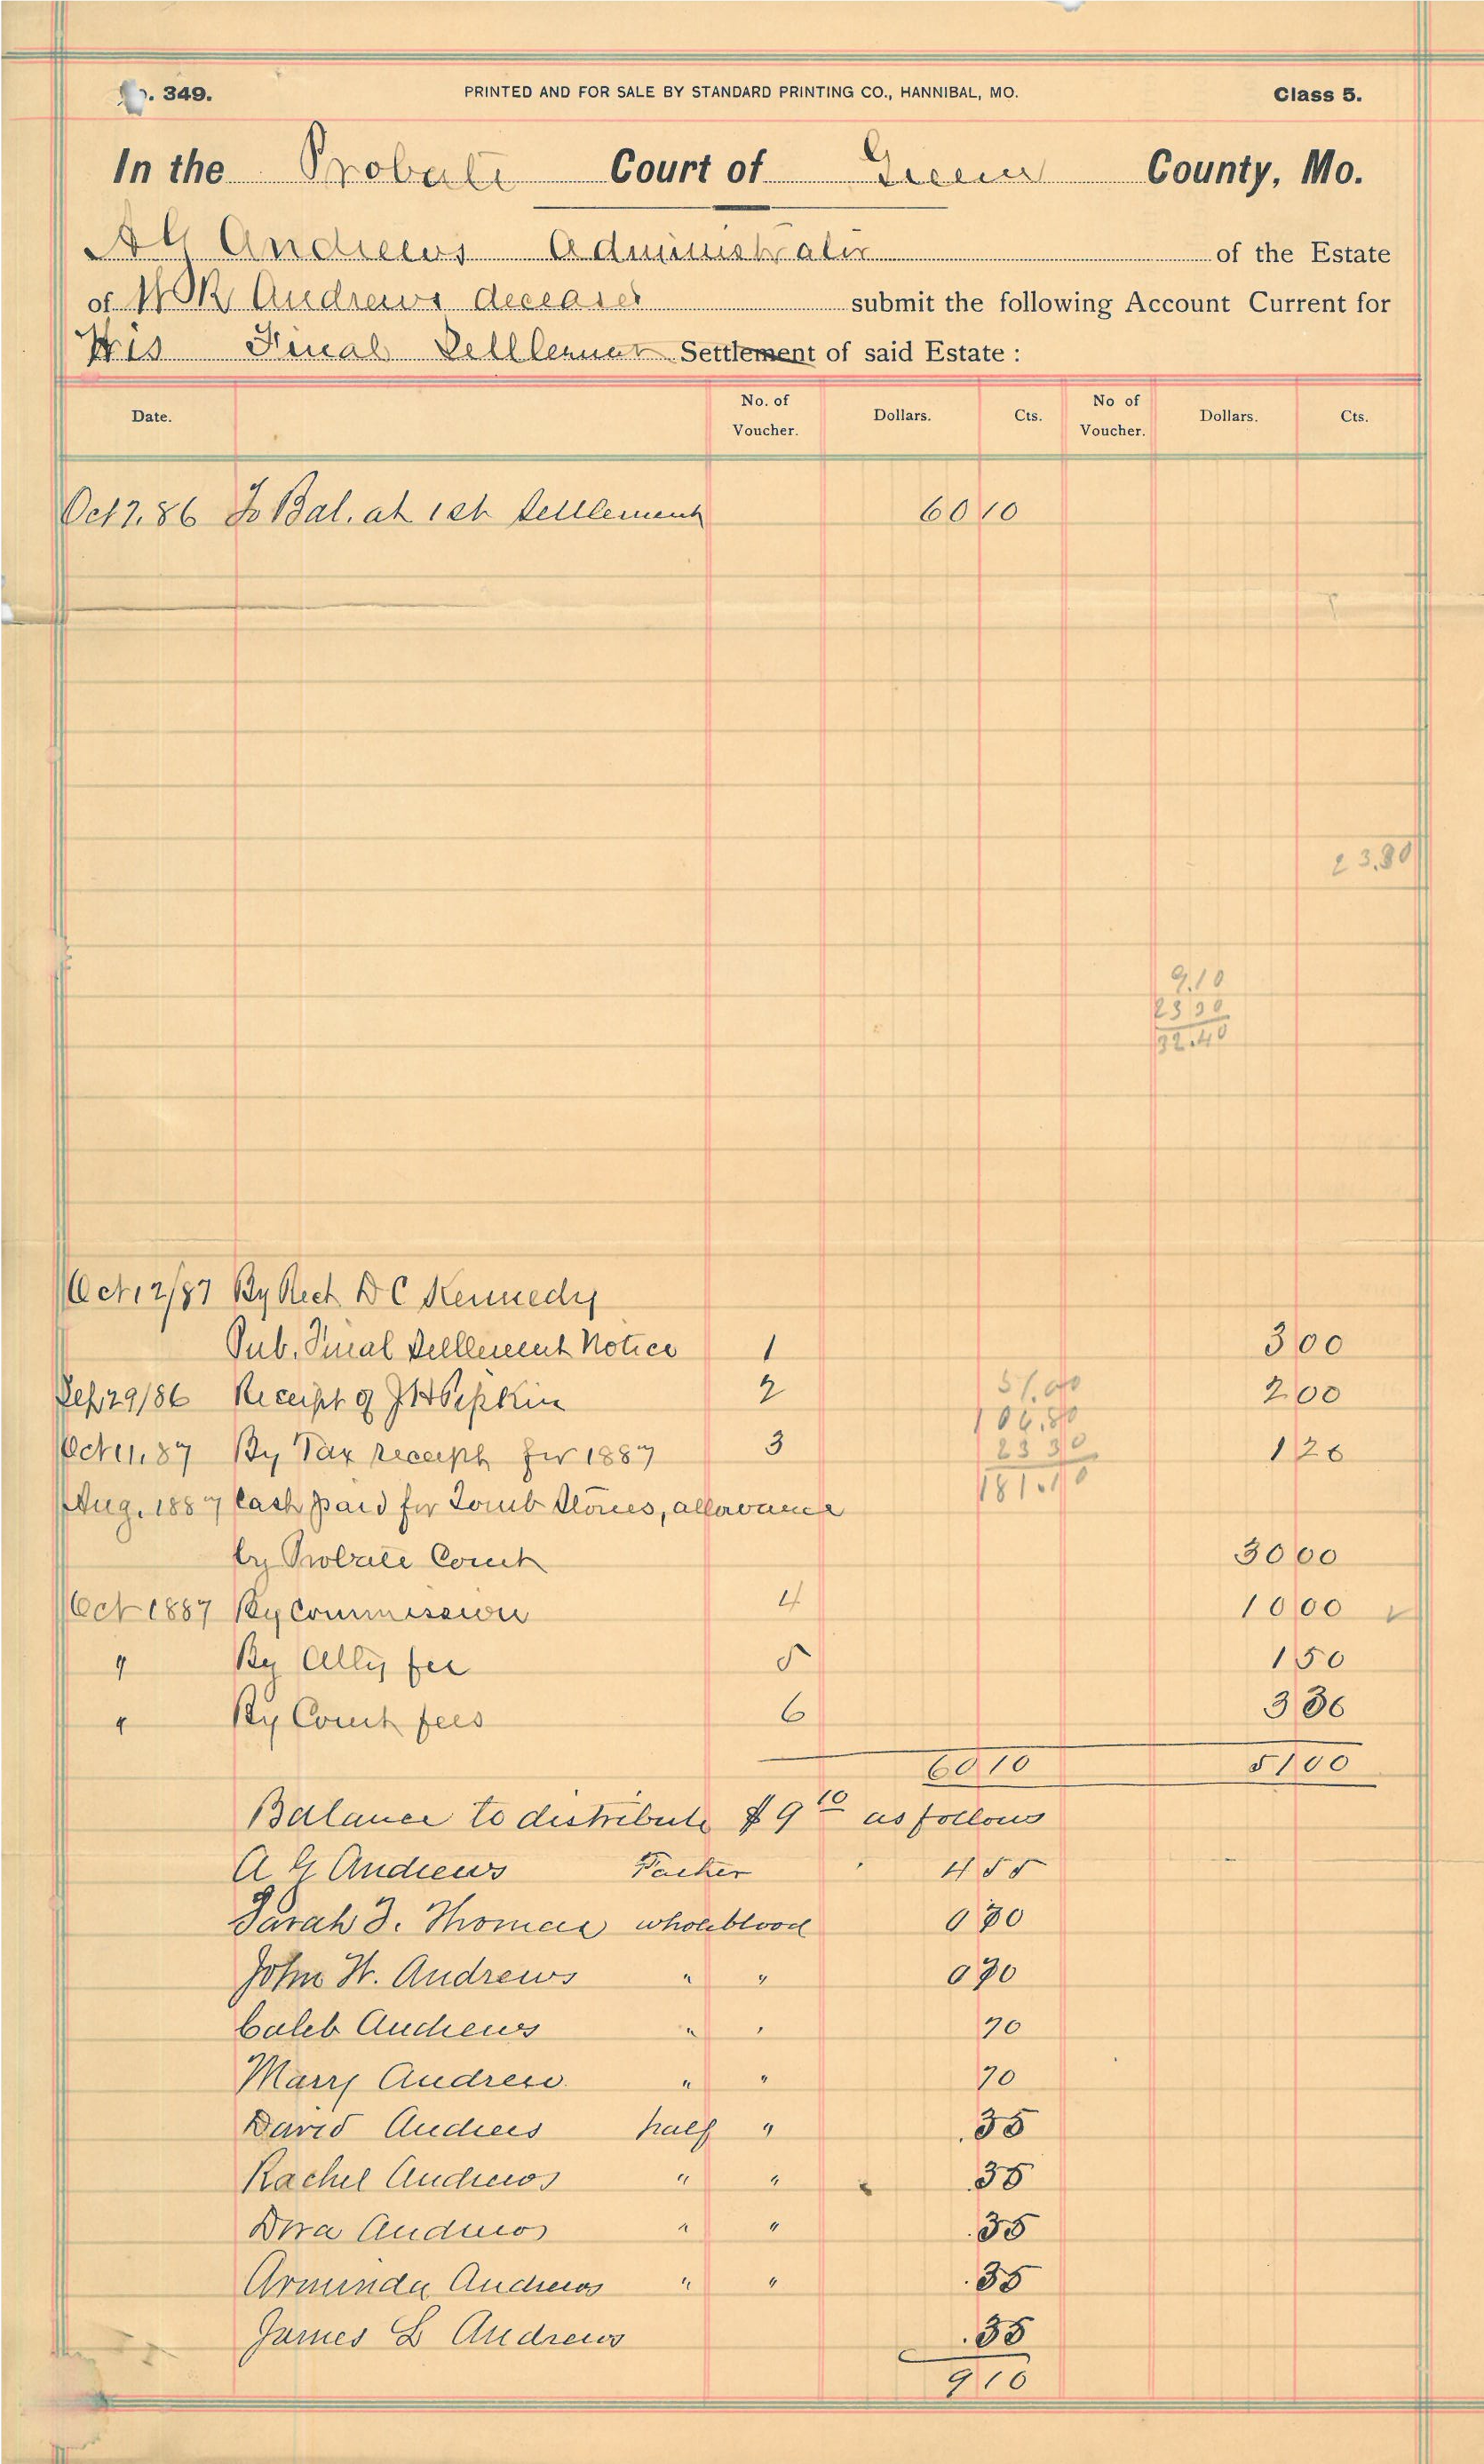 . 349. PRINTED AND FOR SALE BY STANDARD PRINTING CO., HANNIBAL, MO. Class 5.
In the Probate Court of Greene County, Mo.
A G Andrews Administrator of the Estate
of W R Andrews deceased submit the following Account Current for
His Final Settlement Settlement of said Estate :
Date. No. of Voucher. Dollars. Cts. No of Voucher. Dollars. Cts.
Oct 7, 86 To Bal. at 1st Settlement 60 10
23.30
9.10
23 30
32.40
Oct 12/87 By Rect D C Kennedy
Pub. Final Settlement Notice 1 3 00
Sep 29/86 Receipt of J H Pipkin 2 51.00 2 00
106.80
Oct 11, 87 By Tax receipt for 1887 3 23 30 1 26
181.10
Aug. 1887 Cash paid for Tomb Stones, allowance
by Probate Court 30 00
Oct 1887 By Commission 4 10 00
" By Atty fee 5 1 50
" By Court fees 6 3 36
60 10 51 00
Balance to distribute $ 9 10 as follows
A G Andrews Father 4 55
Sarah J. Thomas whole blood 0 70
John W. Andrews " " 0 70
Caleb Andrews " " 70
Mary Andrew " " 70
David Andrews half " .35
Rachel Andrews " " .35
Dora Andrews " " .35
Arminda Andrews " " .35
James L Andrews .35
9 10